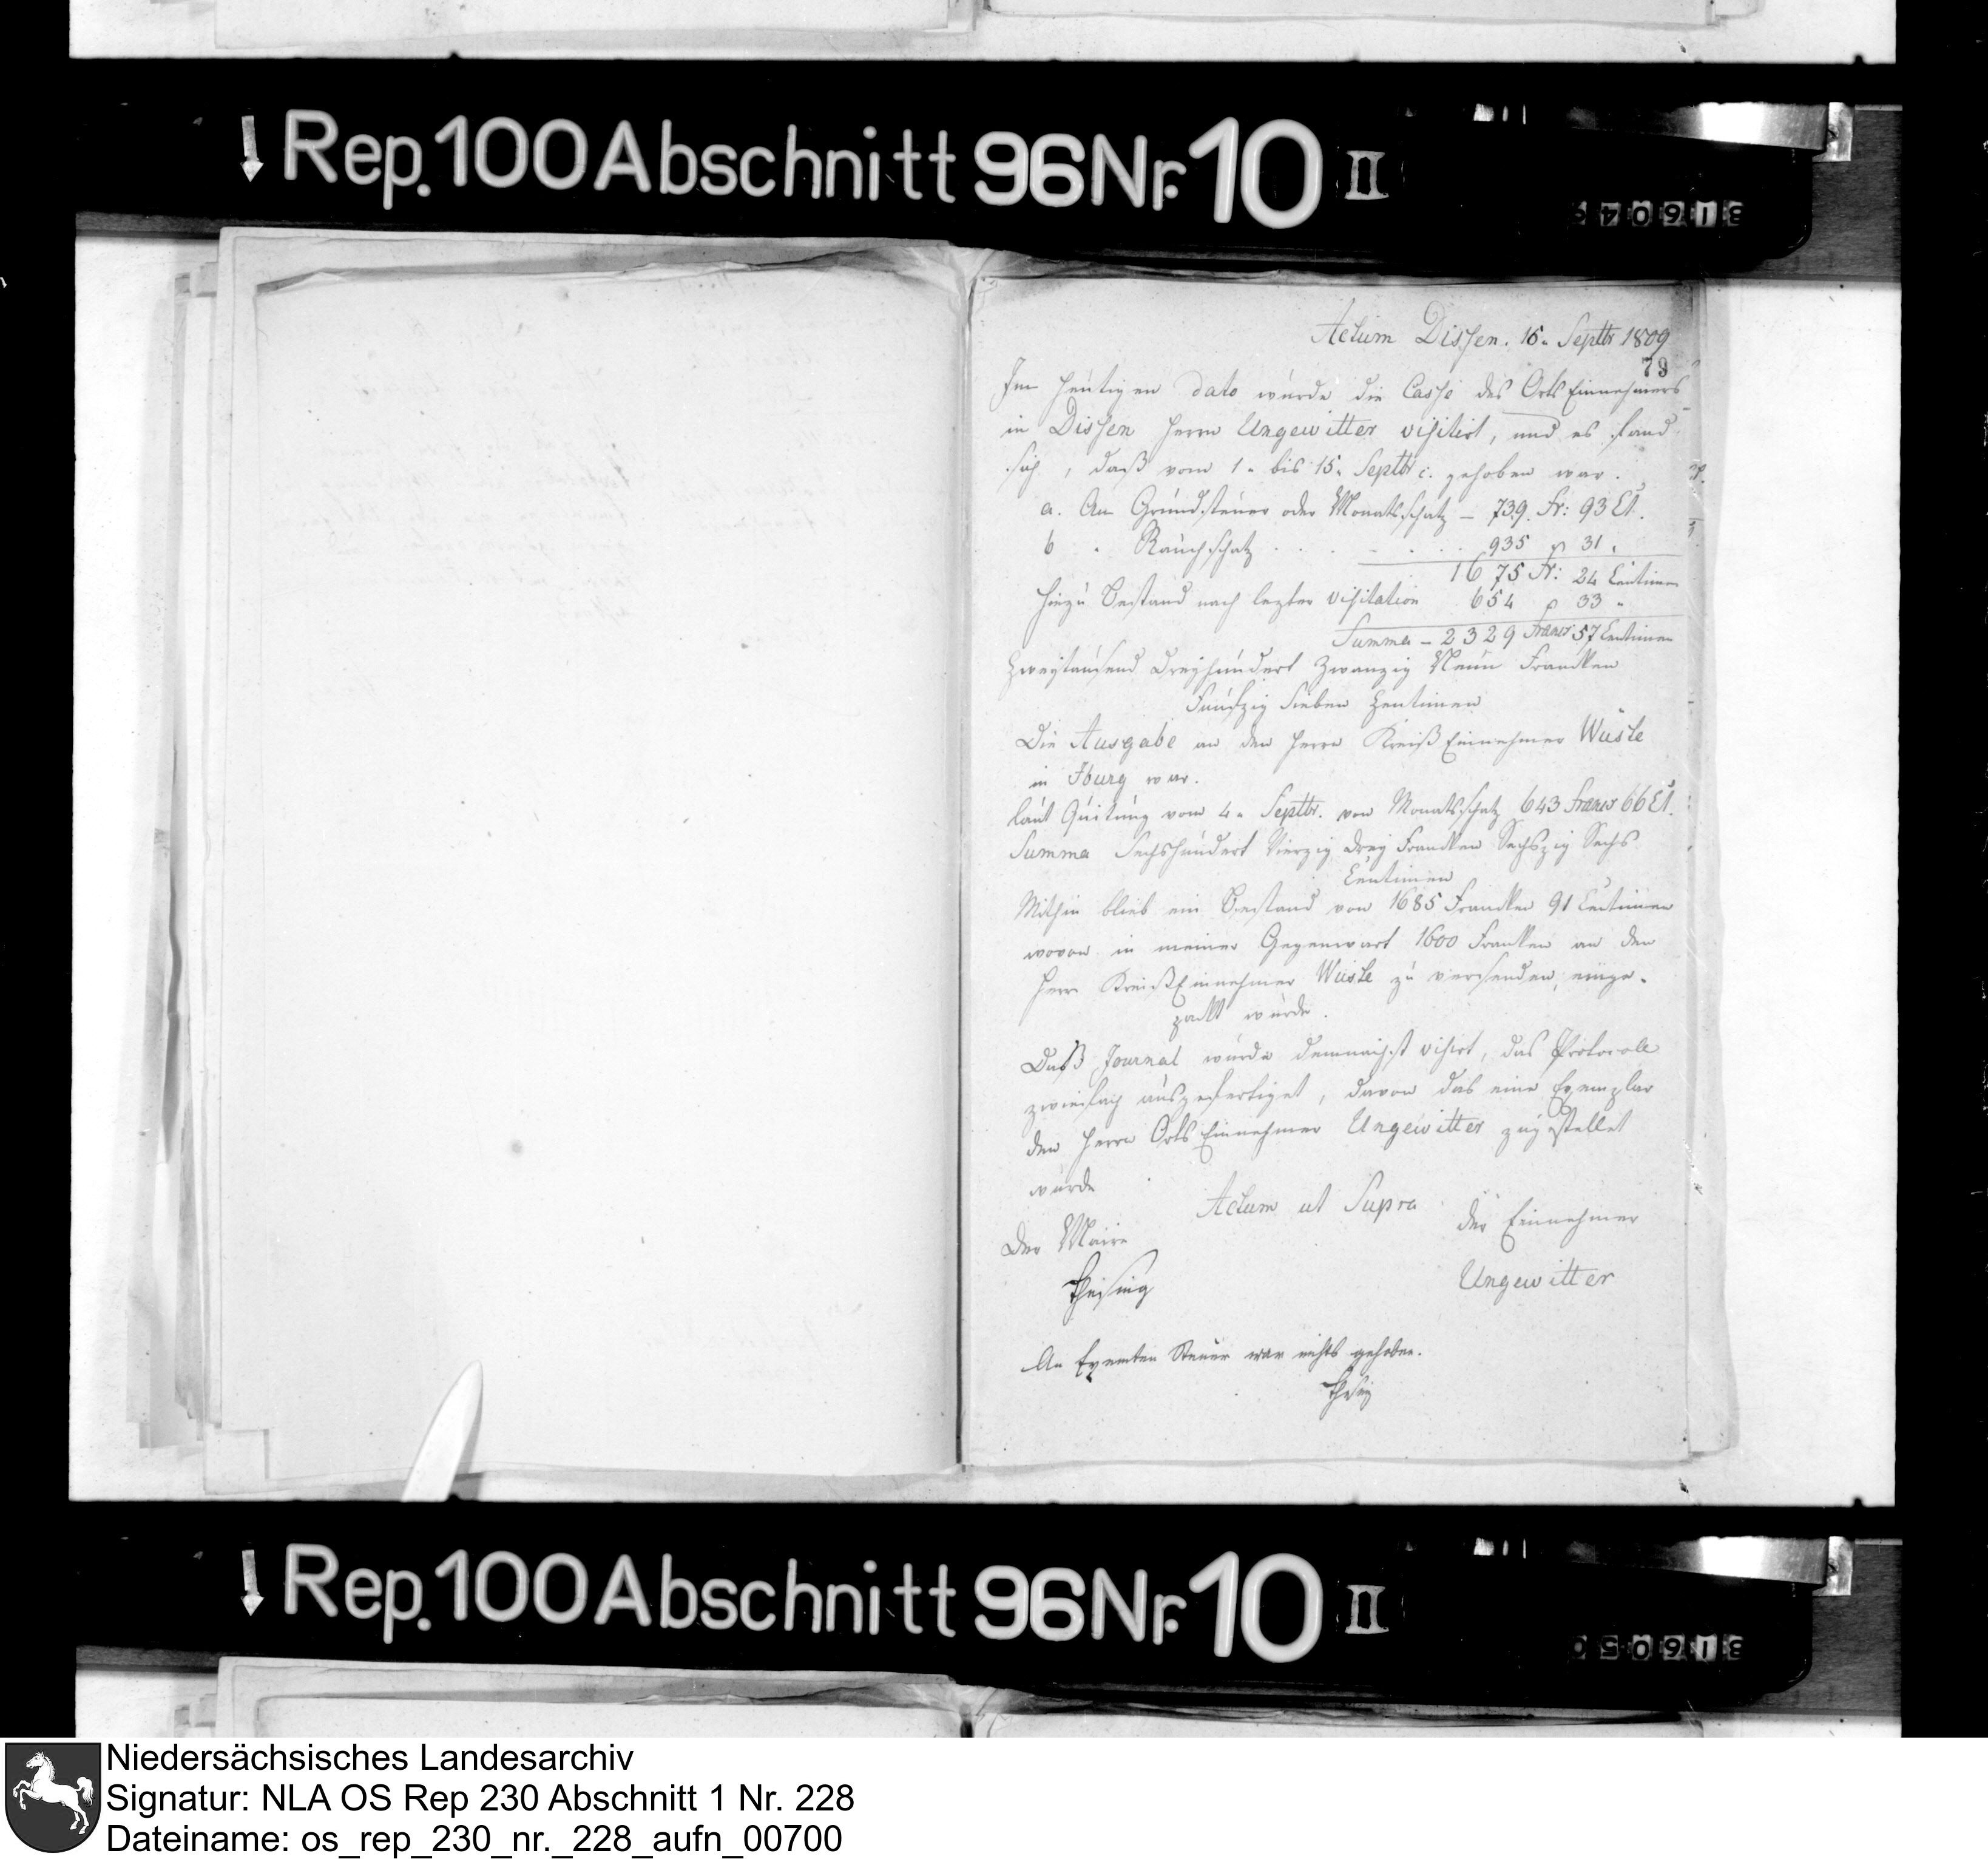 Rep. 100 Abschnitt 96 Nr. 10 II
Actum Dissen. 15. Septbr 1809
79
Im heutigen dato wurde die Casse des Orts Einnehmers
in Dissen Herrn Ungewitter visitirt, und es fand
sich, daß vom 1. bis 15. Septbr c. gehoben war.
a. An Grundsteuer oder Monatsschatz – 739. Fr: 93 Ct.
b " Rauchschatz . . . . . . 935 " 31 "
1675 Fr: 24 Centimen
Hiezu Bestand nach lezter visitation 654 " 33 "
Summa – 2329 Francs 57 Centimen
Zweytausend Dreyhundert Zwanzig Neun Francken
Funfzig Sieben Zentimen
Die Ausgabe an den Herrn Kreiß Einnehmer Wüste
in Iburg war.
laut Quitung vom 4. Septbr. von Monatsschatz 643 Francs 66 Ct.
Summa Sechshundert Vierzig drey Francken Sechszig Sechs
Centimen
Mithin blieb ein Bestand von 1685 Francken 91 Centimen
wovon in meiner Gegenwart 1600 Franken an den
Herrn Kreiß Einnehmer Wüste zu versenden, einge-
packt wurde.
Daß Journal wurde demnächst visirt, das Protocoll
zweifach ausgefertiget, davon das eine Exemplar
den Herrn Orts Einnehmer Ungewitter zugestellet
wurde
Actum ut Supra
Der Maire
der Einnehmer
Theising
Ungewitter
An Exemten Steuer war nichts gehoben.
Rep. 100 Abschnitt 96 Nr. 10 II
Niedersächsisches Landesarchiv
Signatur: NLA OS Rep 230 Abschnitt 1 Nr. 228
Dateiname: os_rep_230_nr._228_aufn_00700